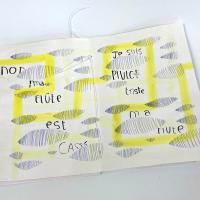 non
ma
flûte
est
CASSÉ
Je suis
PLUtôt
triste
ma
flûte